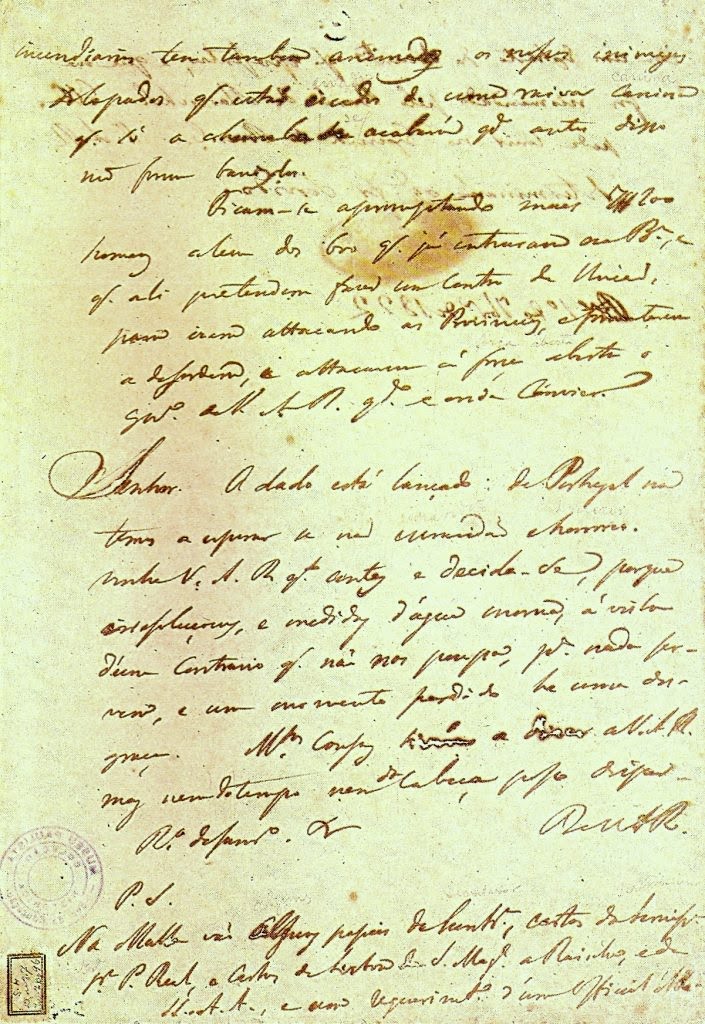 incendiarios tem tambem animado os nossos inimigos
q. estão iscados de uma raiva canina
q. só a chumbada acabará qdo antes disso
não forem banidos.
Ficam-se apromptando mais 7#200
homens alem dos 600 q. já entraram na Ba., e
q. ali pretendem fazer um Centro de União,
para irem attacando as Provincias, e promoterem
a desordem, e attacarem á força aberta o
Govo. de V. A. R. qdo. e onde Convier.
Senhor. O dado está lançado: de Portugal não
temos a esperar se não escravidão e horrores.
Venha V. A. R. q.to antes e decida-se, porque
irresoluções, e medidas d'água morna, á vista
d'esse Contrario q. não nos poupa, pa. nada ser-
vem, e um momento perdido he uma des-
graça. Mtas. Cousas a dizer a V. A. R.
mas nem do tempo nem da Cabeça posso dispor-
De V A R.
P. S.
Na Malla vão alguns papeis de
pa. P. Real, e Cartas de Lisboa de S. Mage. a Rainha, e de
SS. A. A., e um requerimto. d'um Official